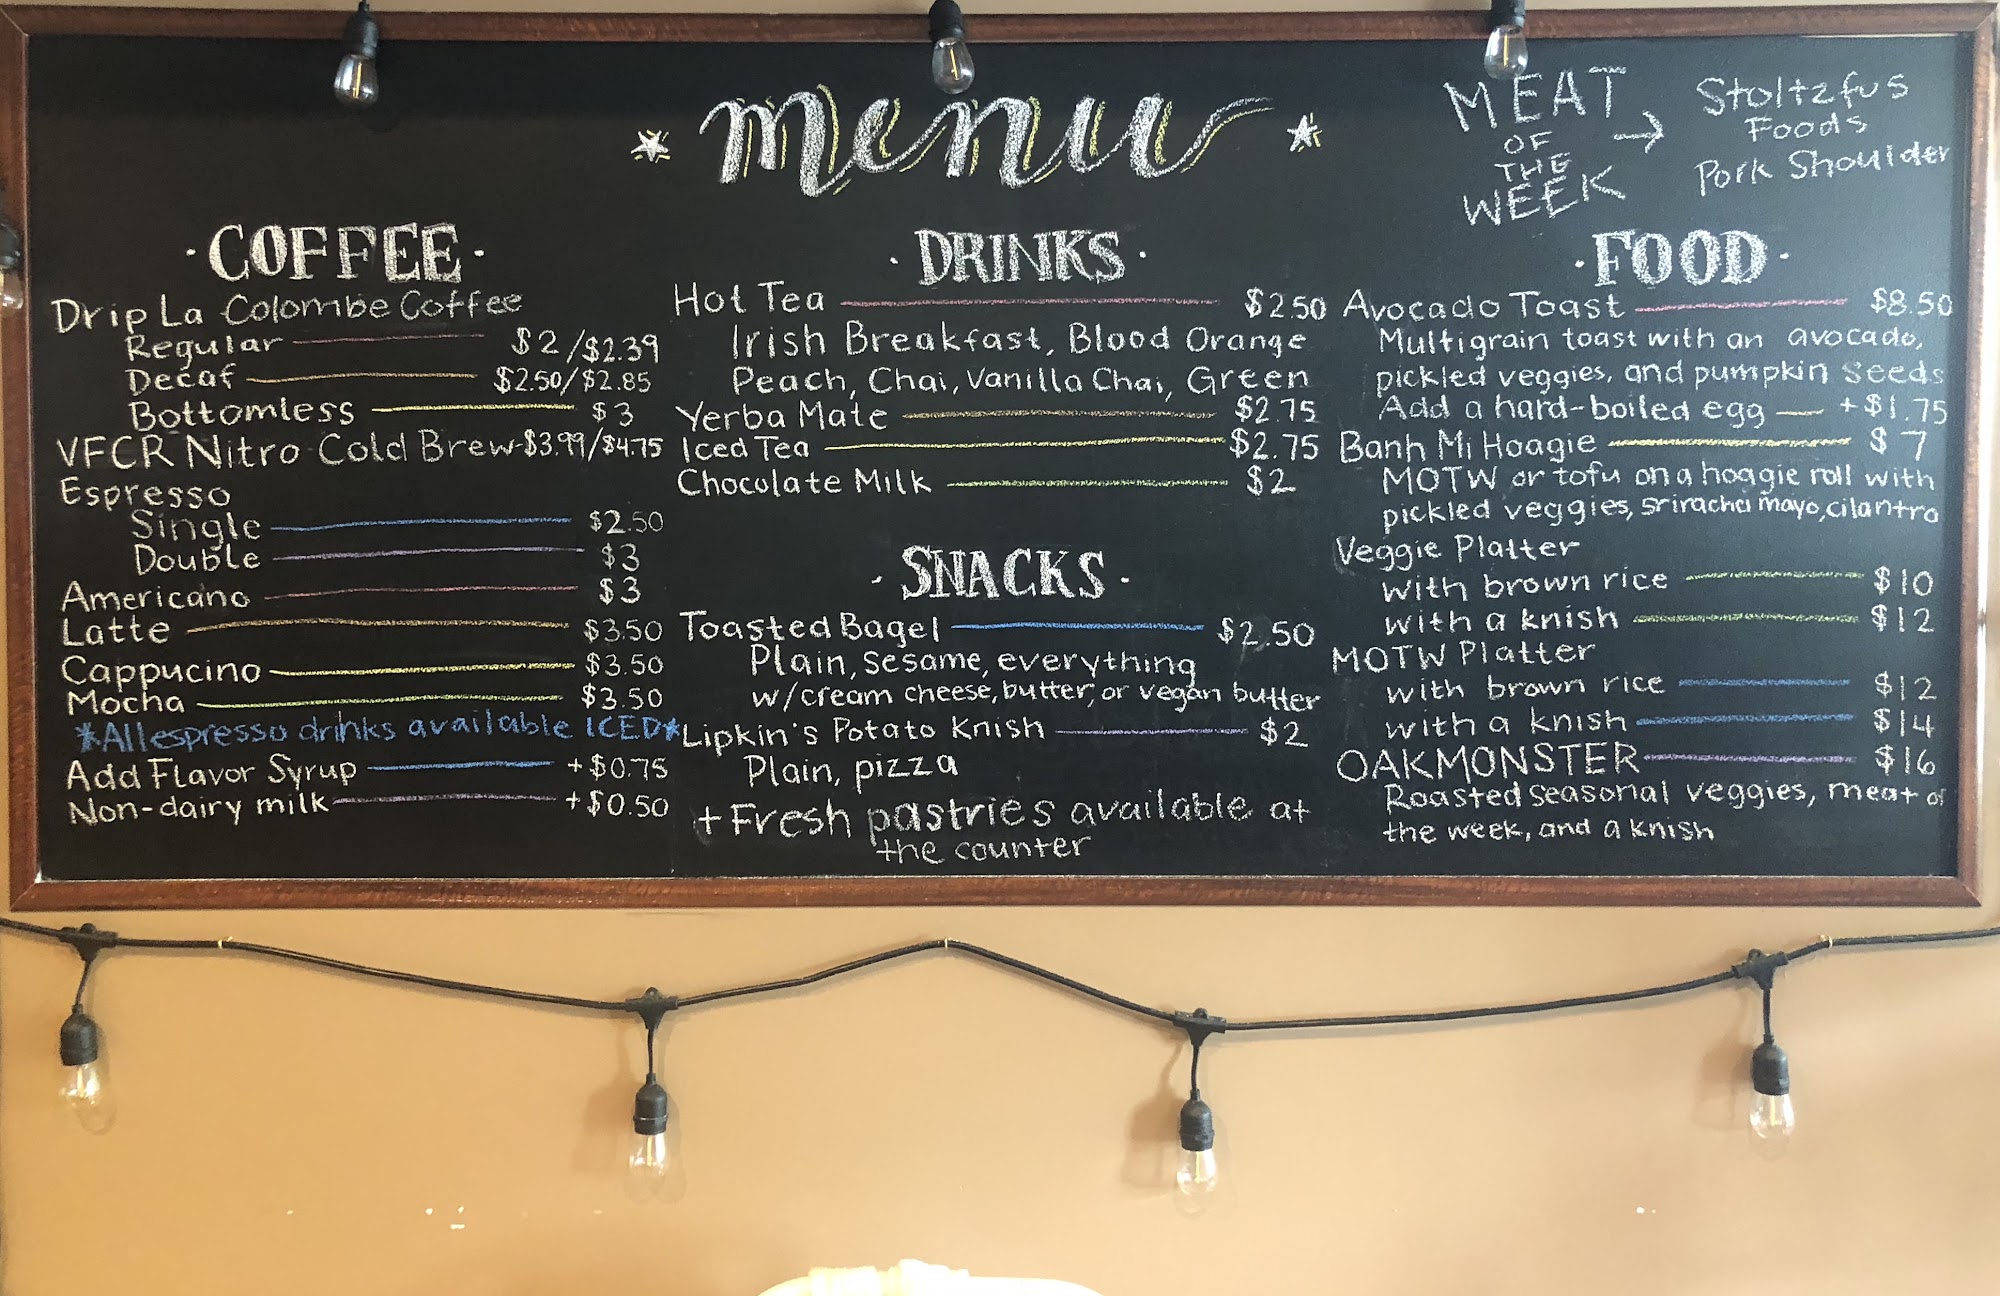 menu
MEAT
OF
THE
WEEK
→ Stoltzfus
Foods
Pork Shoulder
·COFFEE·
Drip La Colombe Coffee
Regular $2/$2.39
Decaf $2.50/$2.85
Bottomless $3
VFCR Nitro Cold Brew-$3.99/$4.75
Espresso
Single $2.50
Double $3
Americano $3
Latte $3.50
Cappucino $3.50
Mocha $3.50
*All espresso drinks available ICED*
Add Flavor Syrup +$0.75
Non-dairy milk +$0.50
·DRINKS·
Hot Tea $2.50
Irish Breakfast, Blood Orange
Peach, Chai, Vanilla Chai, Green
Yerba Mate $2.75
Iced Tea $2.75
Chocolate Milk $2
·SNACKS·
Toasted Bagel $2.50
Plain, sesame, everything
w/cream cheese, butter, or vegan butter
Lipkin's Potato Knish $2
Plain, pizza
+Fresh pastries available at
the counter
·FOOD·
Avocado Toast $8.50
Multigrain toast with an avocado,
pickled veggies, and pumpkin seeds
Add a hard-boiled egg +$1.75
Banh Mi Hoagie $7
MOTW or tofu on a hoagie roll with
pickled veggies, sriracha mayo, cilantro
Veggie Platter
with brown rice $10
with a knish $12
MOTW Platter
with brown rice $12
with a knish $14
OAKMONSTER $16
Roasted seasonal veggies, meat of
the week, and a knish